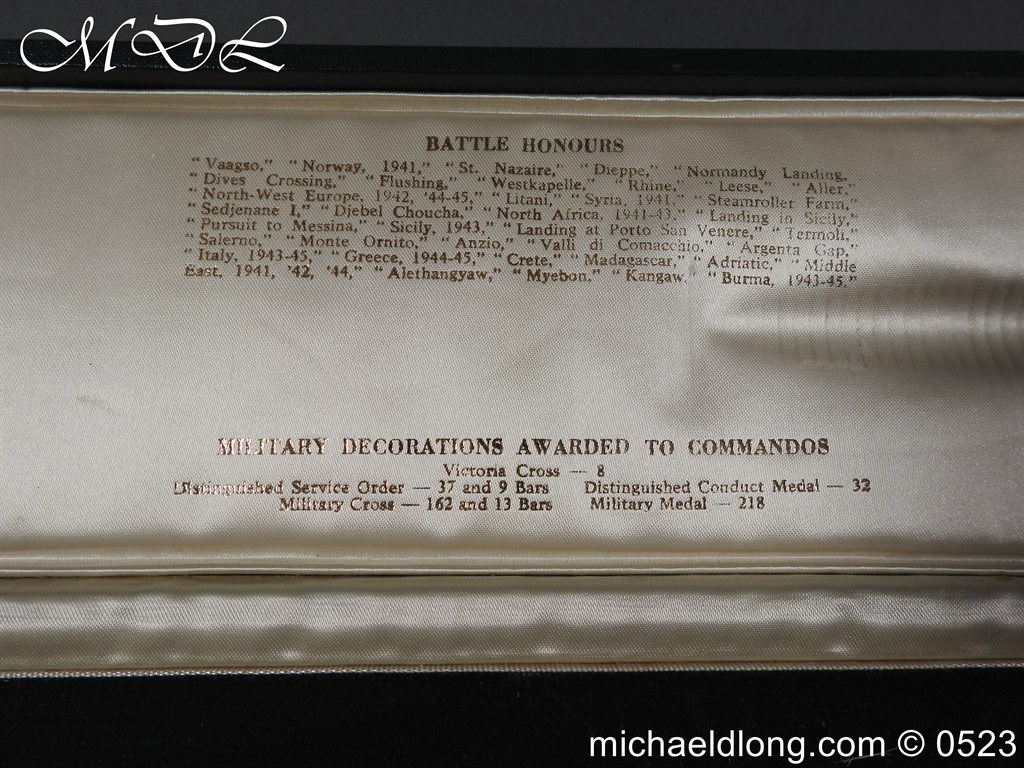 MDL
BATTLE HONOURS
“ Vaagso,” “ Norway, 1941,” “ St. Nazaire,” “ Dieppe,” “ Normandy Landing,
“ Dives Crossing,” “ Flushing,” “ Westkapelle,” “ Rhine,” “ Leese,” “ Aller,”
“ North-West Europe, 1942, ’44-45,” “ Litani,” “ Syria, 1941,” “ Steamroller Farm,”
“ Sedjenane I,” “ Djebel Choucha,” “ North Africa, 1941-43,” “ Landing in Sicily,”
“ Pursuit to Messina,” “ Sicily, 1943,” “ Landing at Porto San Venere,” “ Termoli,”
“ Salerno,” “ Monte Ornito,” “ Anzio,” “ Valli di Comacchio,” “ Argenta Gap,”
“ Italy, 1943-45,” “ Greece, 1944-45,” “ Crete,” “ Madagascar,” “ Adriatic,” “ Middle
East, 1941, ’42, ’44,” “ Alethangyaw,” “ Myebon,” “ Kangaw, “ Burma, 1943-45.”
MILITARY DECORATIONS AWARDED TO COMMANDOS
Victoria Cross — 8
Distinguished Service Order — 37 and 9 Bars Distinguished Conduct Medal — 32
Military Cross — 162 and 13 Bars Military Medal — 218
michaeldlong.com © 0523